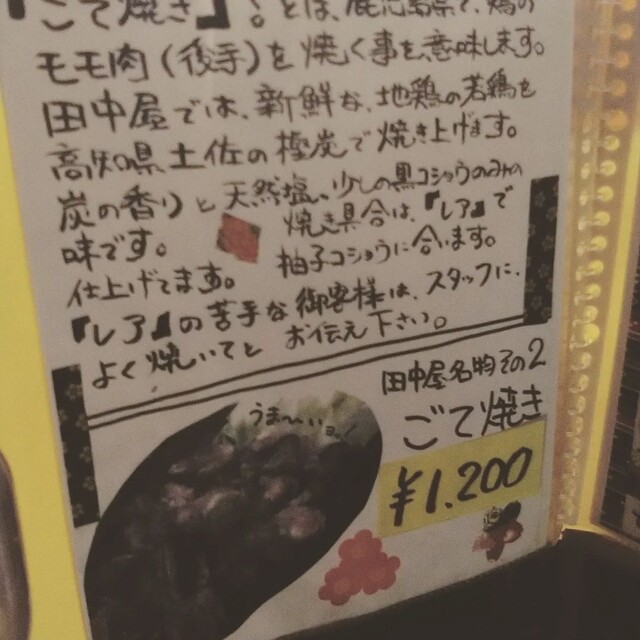 『ごて焼き』。とは、鹿児島県で、鶏の
モモ肉(後手)を焼く事を、意味します。
田中屋では、新鮮な、地鶏の若鶏を
高知県土佐の樫炭で焼き上げます。
炭の香りと天然塩、少しの黒コショウのみの
味です。 焼き具合は、『レア』で
仕上げてます。 柚子コショウに合います。
『レア』の苦手な御客様は、スタッフに、
よく焼いてと お伝え下さい。
田中屋名物その2
ごて焼き
¥1.200
うま〜いョ